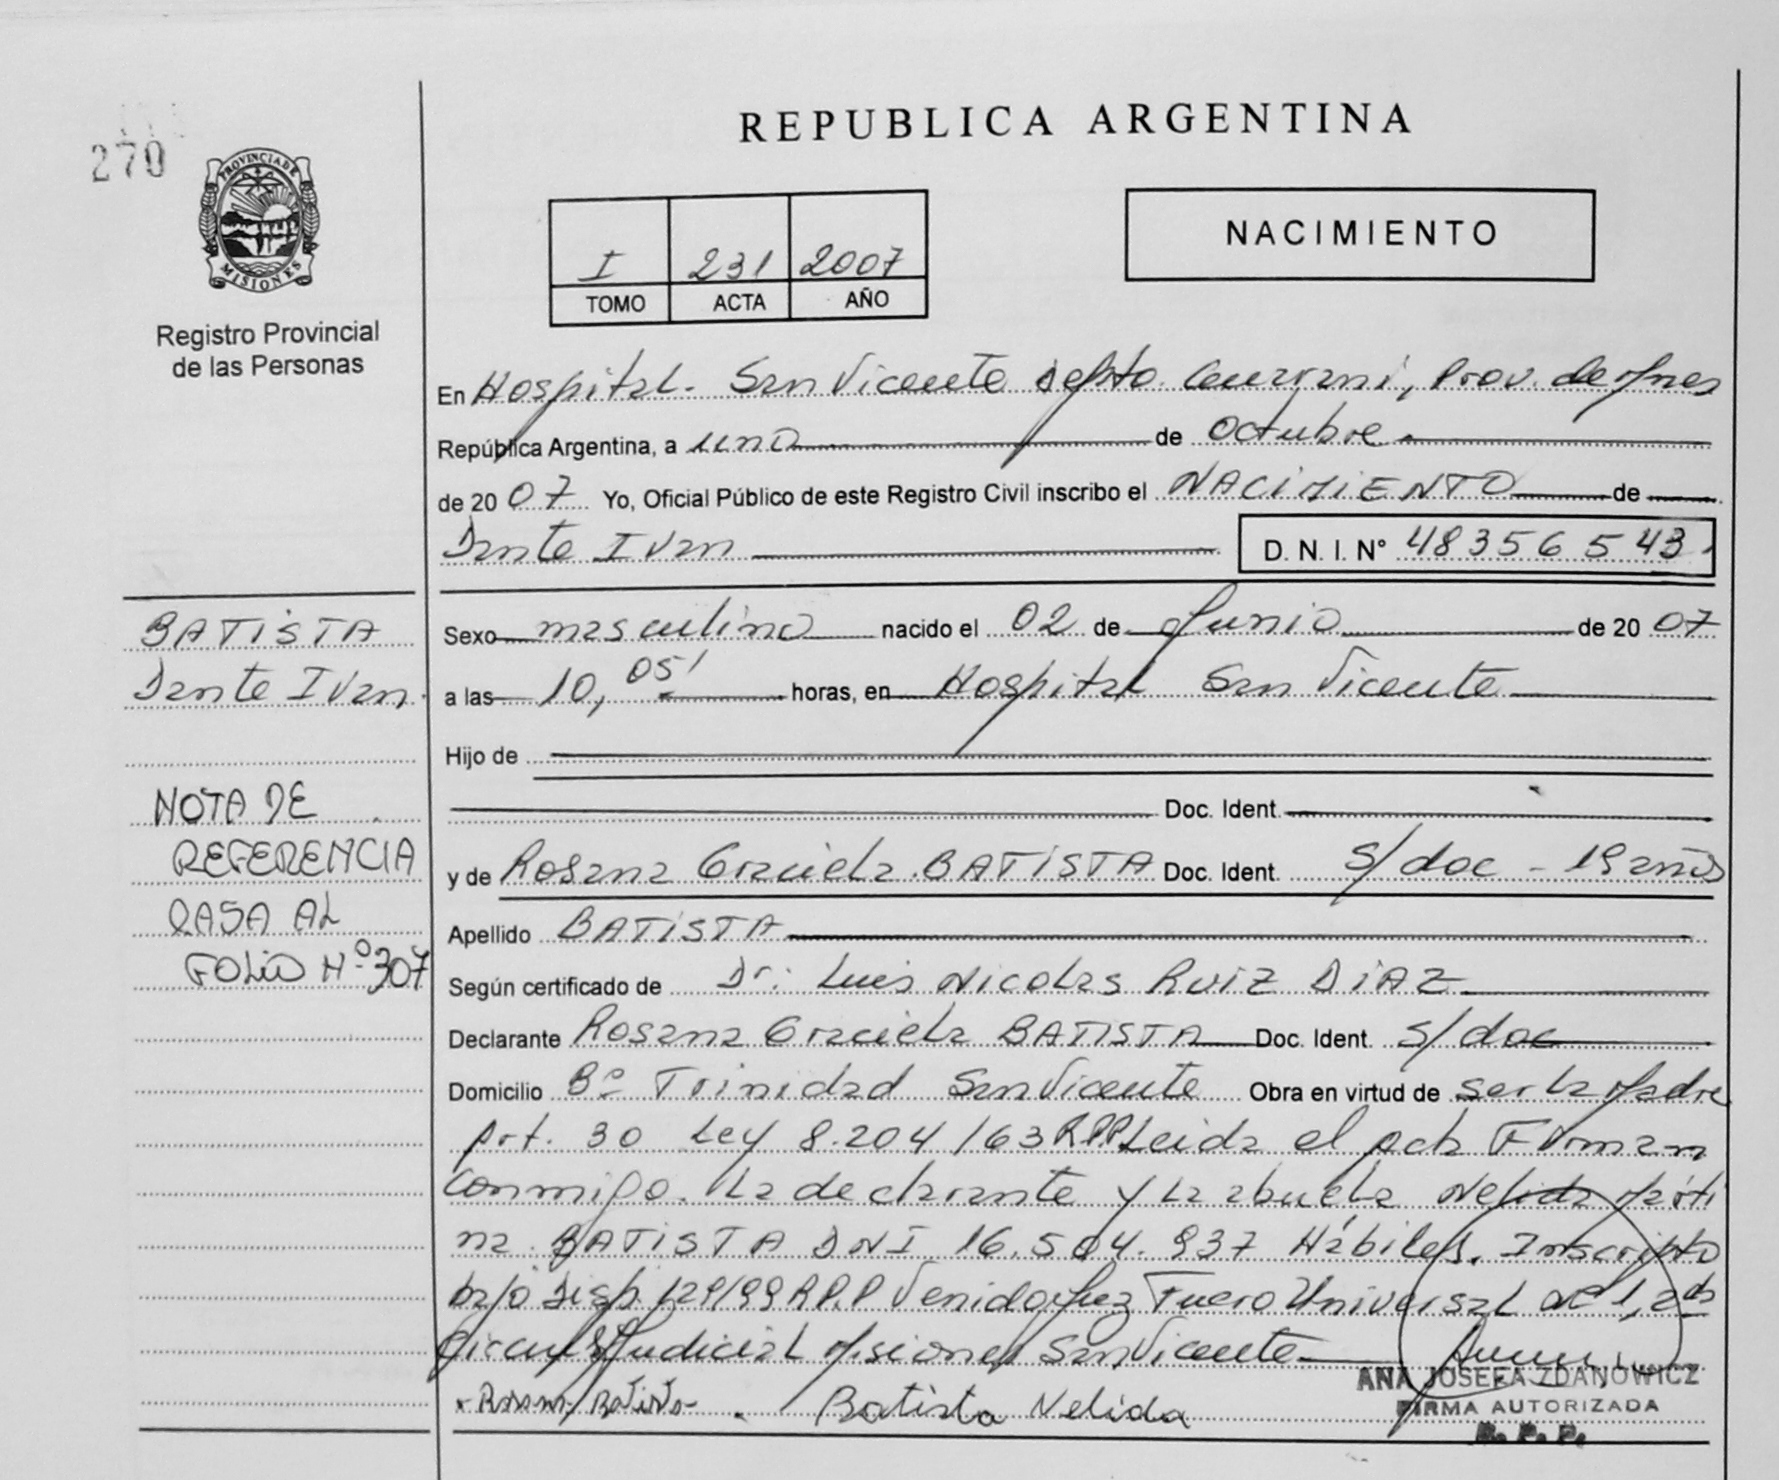 270
PROVINCIA DE
MISIONES
Registro Provincial
de las Personas
REPUBLICA ARGENTINA
I 231 2007
TOMO ACTA AÑO
NACIMIENTO
En Hospital. San Vicente depto. Guarani, Prov. de Mnes
República Argentina, a uno de octubre
de 20 07 Yo, Oficial Público de este Registro Civil inscribo el NACIMIENTO de
Dante Ivan D. N. I. N° 48356543
BATISTA
Dante Ivan.
NOTA DE
REFERENCIA
PASA AL
FOLIO Nº 307
Sexo masculino nacido el 02 de Junio de 20 07
a las 10, 05' horas, en Hospital San Vicente
Hijo de
Doc. Ident.
y de Rosana Graciela BATISTA Doc. Ident. S/doc - 19 años
Apellido BATISTA
Según certificado de Dr: Luis Nicolas RUIZ DIAZ
Declarante Rosana Graciela BATISTA Doc. Ident. S/doc
Domicilio Bº Trinidad San Vicente Obra en virtud de ser la Madre
Art. 30 Ley 8.204/63 R.P.P Leida el acta Firman
conmigo. La declarante y la abuela Nelida Marti
na BATISTA DNI 16.504.937 Hábiles. Inscripto
bajo Disp. 129/99 R.P.P Venido Juez Fuero Universal Nº 1, 2da
Circuns. Judicial Misiones San Vicente
Rosana Batista Batista Nelida
ANA JOSEFA ZDANOWICZ
FIRMA AUTORIZADA
R. P. P.